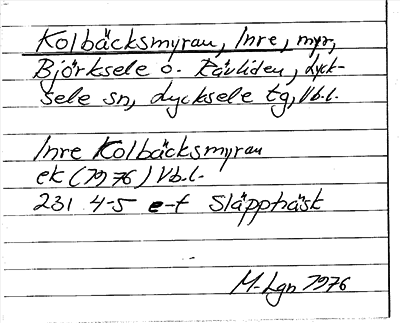 Kolbäcksmyran, Inre, myr,
Björksele o. Rävliden, Lyck-
sele sn, Lycksele tg, Vb.l.
Inre Kolbäcksmyran
ek (1976) Vb.l.
231 4-5 e-f Släppträsk
M-Lgn 1976